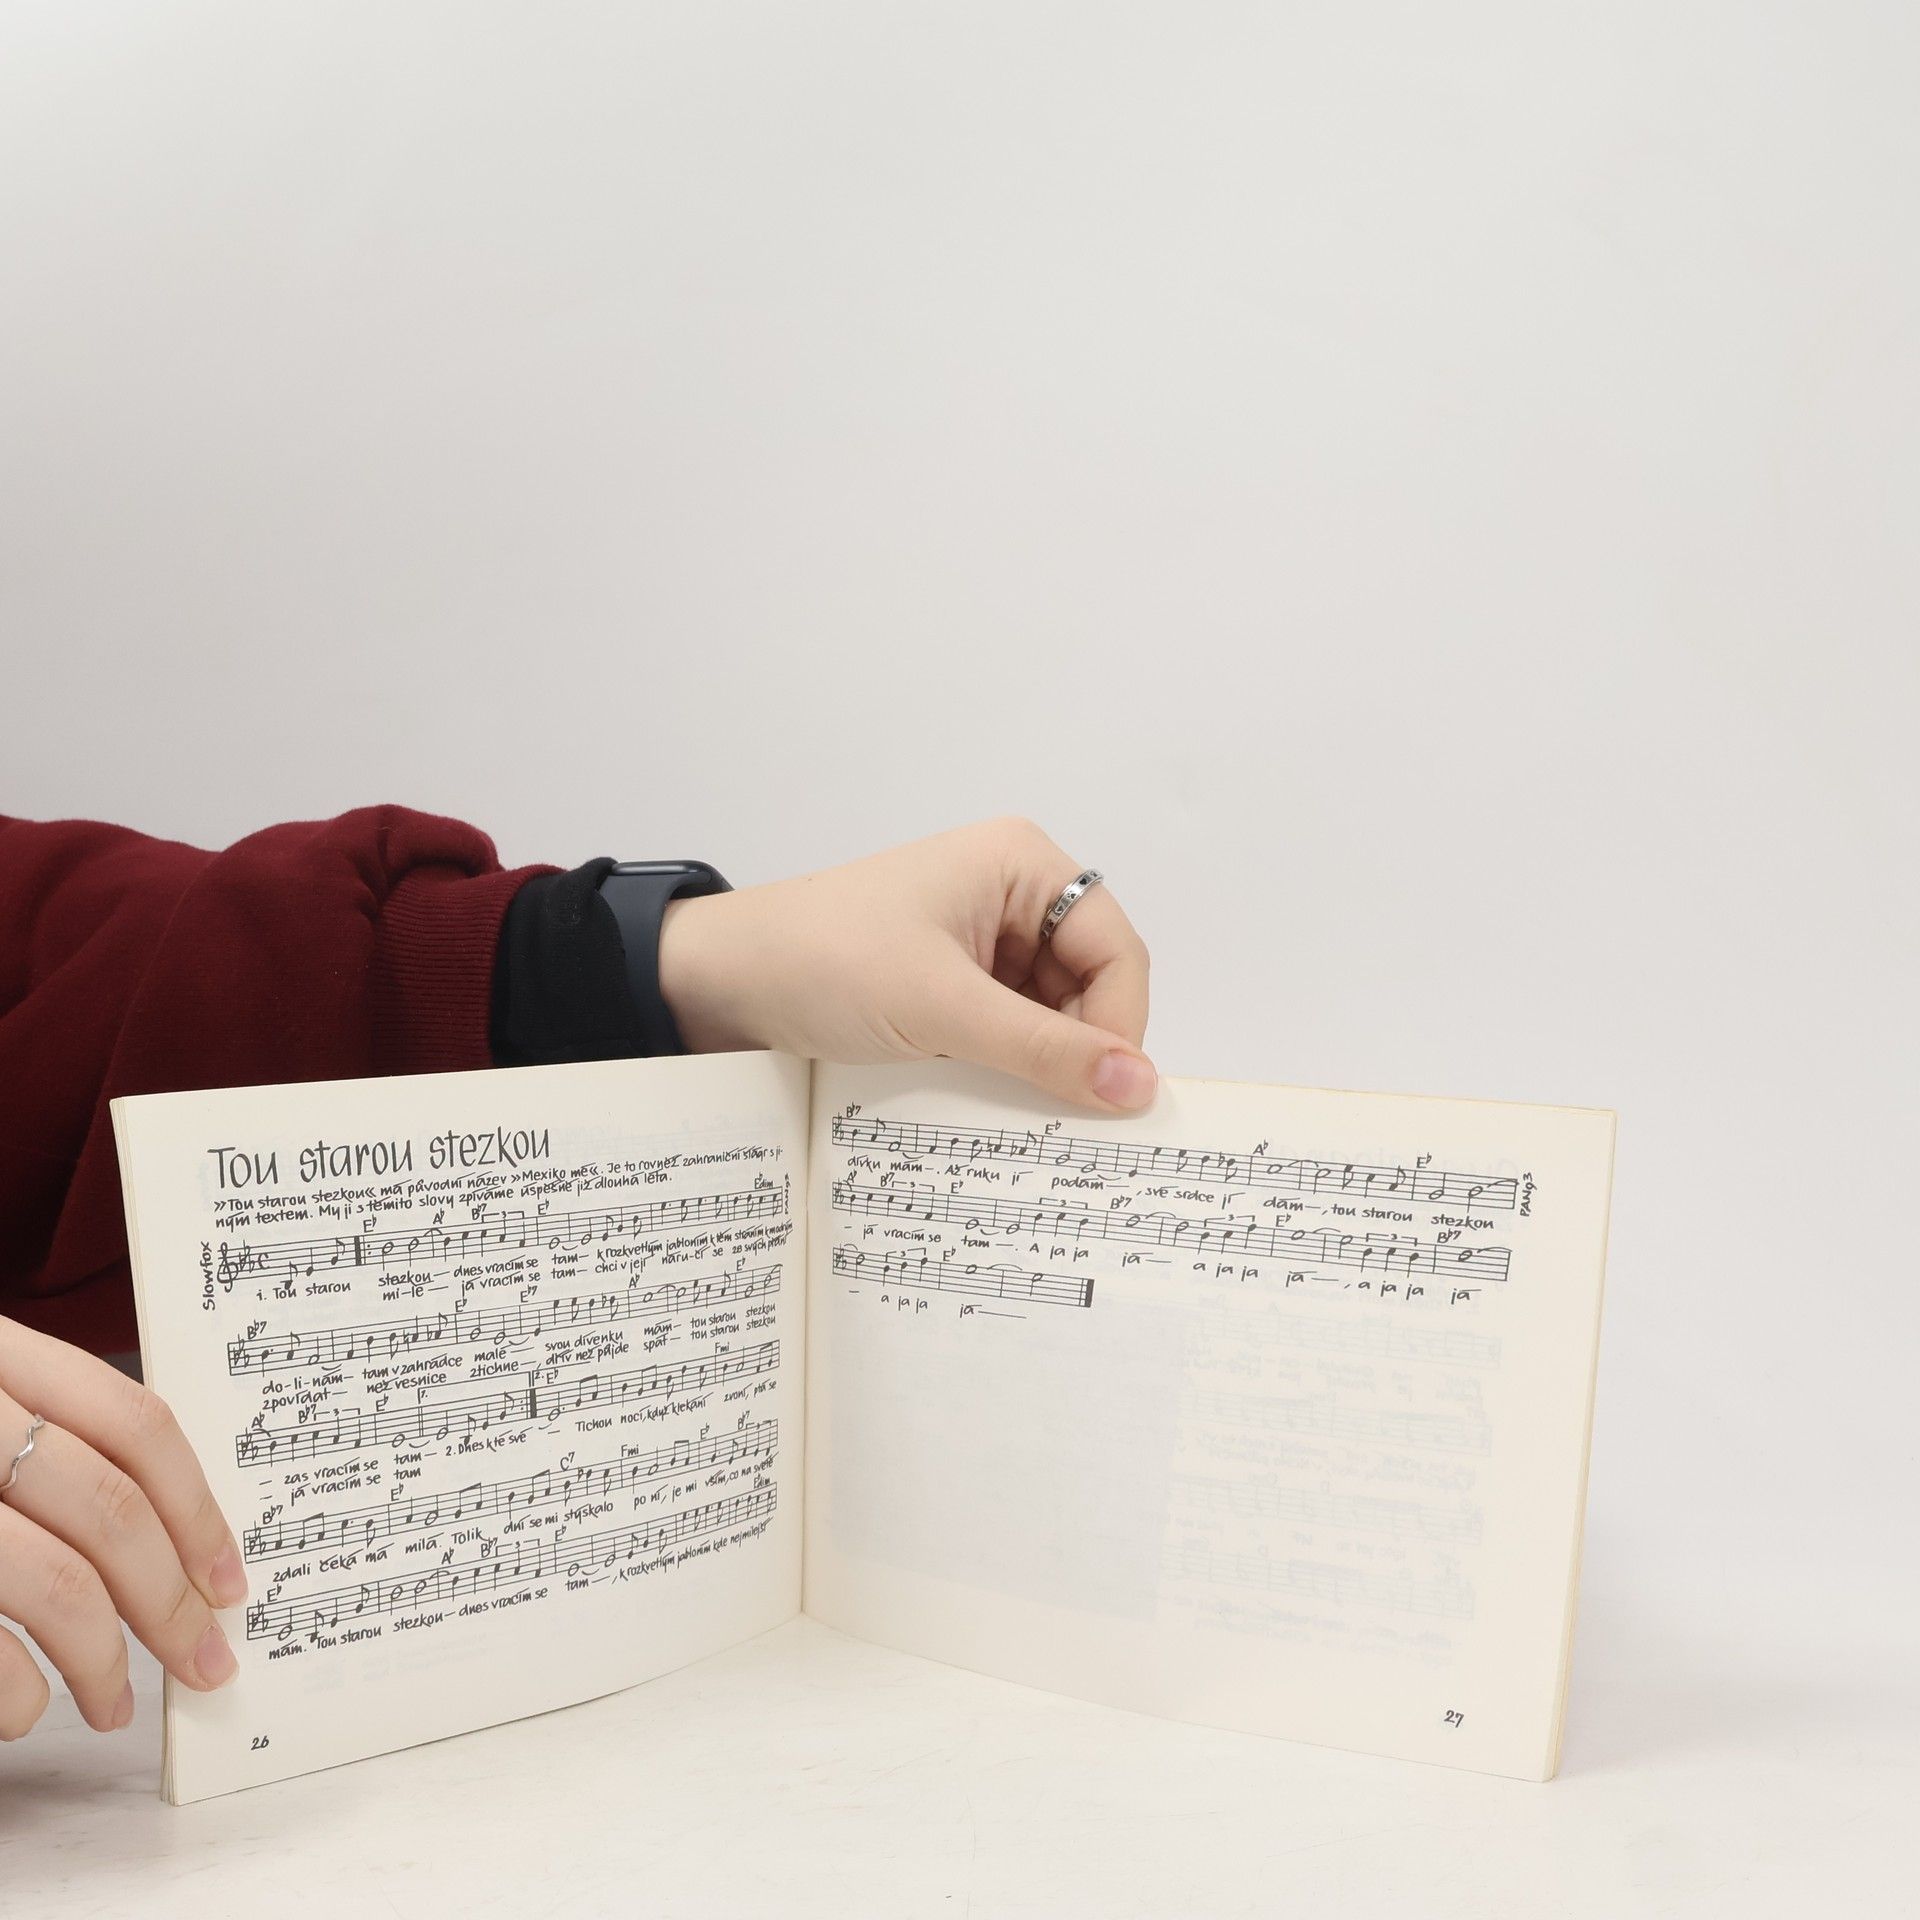 Tou starou stezkou
»Tou starou stezkou« má původní název »Mexiko mé«. Je to rovněž zahraniční šlágr s ji-
ným textem. My ji s těmito slovy zpíváme úspěšně již dlouhá léta.
Slowfox
E♭ A♭ B♭7 3 E♭ Edim
1. Tou starou stezkou — dnes vracím se tam — k rozkvetlým jabloním k těm stráním k modrým
mi-lé — já vracím se tam — chci v její náru-čí se ze svých přání
PAN93
B♭7 E♭ E♭7 A♭ E♭
do-li-nám — tam v zahrádce malé — svou dívenku mám — tou starou stezkou
zpovídat — než vesnice ztichne —, dřív než půjde spát — tou starou stezkou
A♭ B♭7 3 E♭ 1. 2. E♭ Fmi
— zas vracím se tam — 2. Dnes k té své — Tichou nocí, když klekání zvoní, ptá se
— já vracím se tam
B♭7 E♭ C7 Fmi E♭ B♭7
zdali čeká má milá. Tolik dní se mi stýskalo po ní, je mi vším, co na světě
E♭ A♭ B♭7 3 E♭ Edim
mám. Tou starou stezkou — dnes vracím se tam —, k rozkvetlým jabloním kde nejmilejší
26
B♭7 E♭ A♭ E♭
dívku mám —. Až ruku jí podám —, své srdce jí dám —, tou starou stezkou
PAN93
A♭ B♭7 3 E♭ 3 B♭7 3 E♭ 3 B♭7
— já vracím se tam —. A ja ja já — a ja ja já —, a ja ja já
3 E♭
— a ja ja já —
27